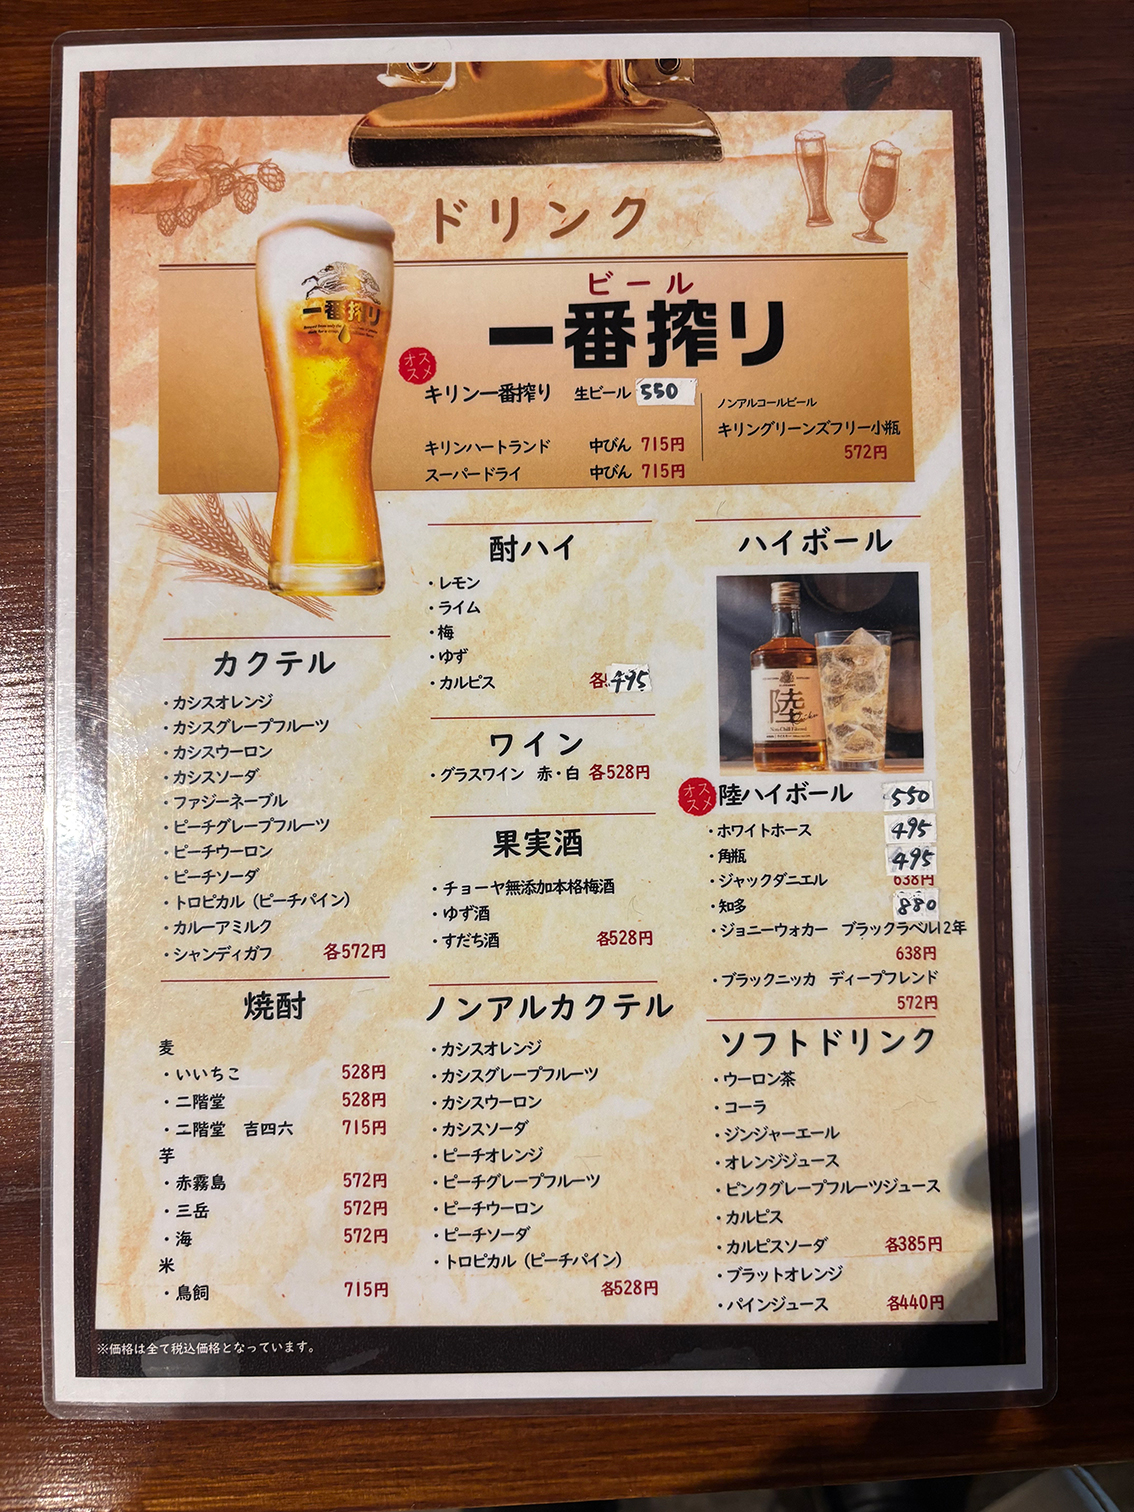 ドリンク
ビール
一番搾り
一番搾り
オススメ
キリン一番搾り 生ビール 550
キリンハートランド 中びん 715円
スーパードライ 中びん 715円
ノンアルコールビール
キリングリーンズフリー小瓶
572円
カクテル
・カシスオレンジ
・カシスグレープフルーツ
・カシスウーロン
・カシスソーダ
・ファジーネーブル
・ピーチグレープフルーツ
・ピーチウーロン
・ピーチソーダ
・トロピカル（ピーチパイン）
・カルーアミルク
・シャンディガフ 各572円
焼酎
麦
・いいちこ 528円
・二階堂 528円
・二階堂 吉四六 715円
芋
・赤霧島 572円
・三岳 572円
・海 572円
米
・鳥飼 715円
酎ハイ
・レモン
・ライム
・梅
・ゆず
・カルピス 各495
ワイン
・グラスワイン 赤・白 各528円
果実酒
・チョーヤ無添加本格梅酒
・ゆず酒
・すだち酒 各528円
ノンアルカクテル
・カシスオレンジ
・カシスグレープフルーツ
・カシスウーロン
・カシスソーダ
・ピーチオレンジ
・ピーチグレープフルーツ
・ピーチウーロン
・ピーチソーダ
・トロピカル（ピーチパイン）
各528円
ハイボール
陸
オススメ
陸ハイボール 550
・ホワイトホース 495
・角瓶 495
・ジャックダニエル 638円
・知多 880
・ジョニーウォカー ブラックラベル12年
638円
・ブラックニッカ ディープフレンド
572円
ソフトドリンク
・ウーロン茶
・コーラ
・ジンジャーエール
・オレンジジュース
・ピンクグレープフルーツジュース
・カルピス
・カルピスソーダ 各385円
・ブラットオレンジ
・パインジュース 各440円
※価格は全て税込価格となっています。